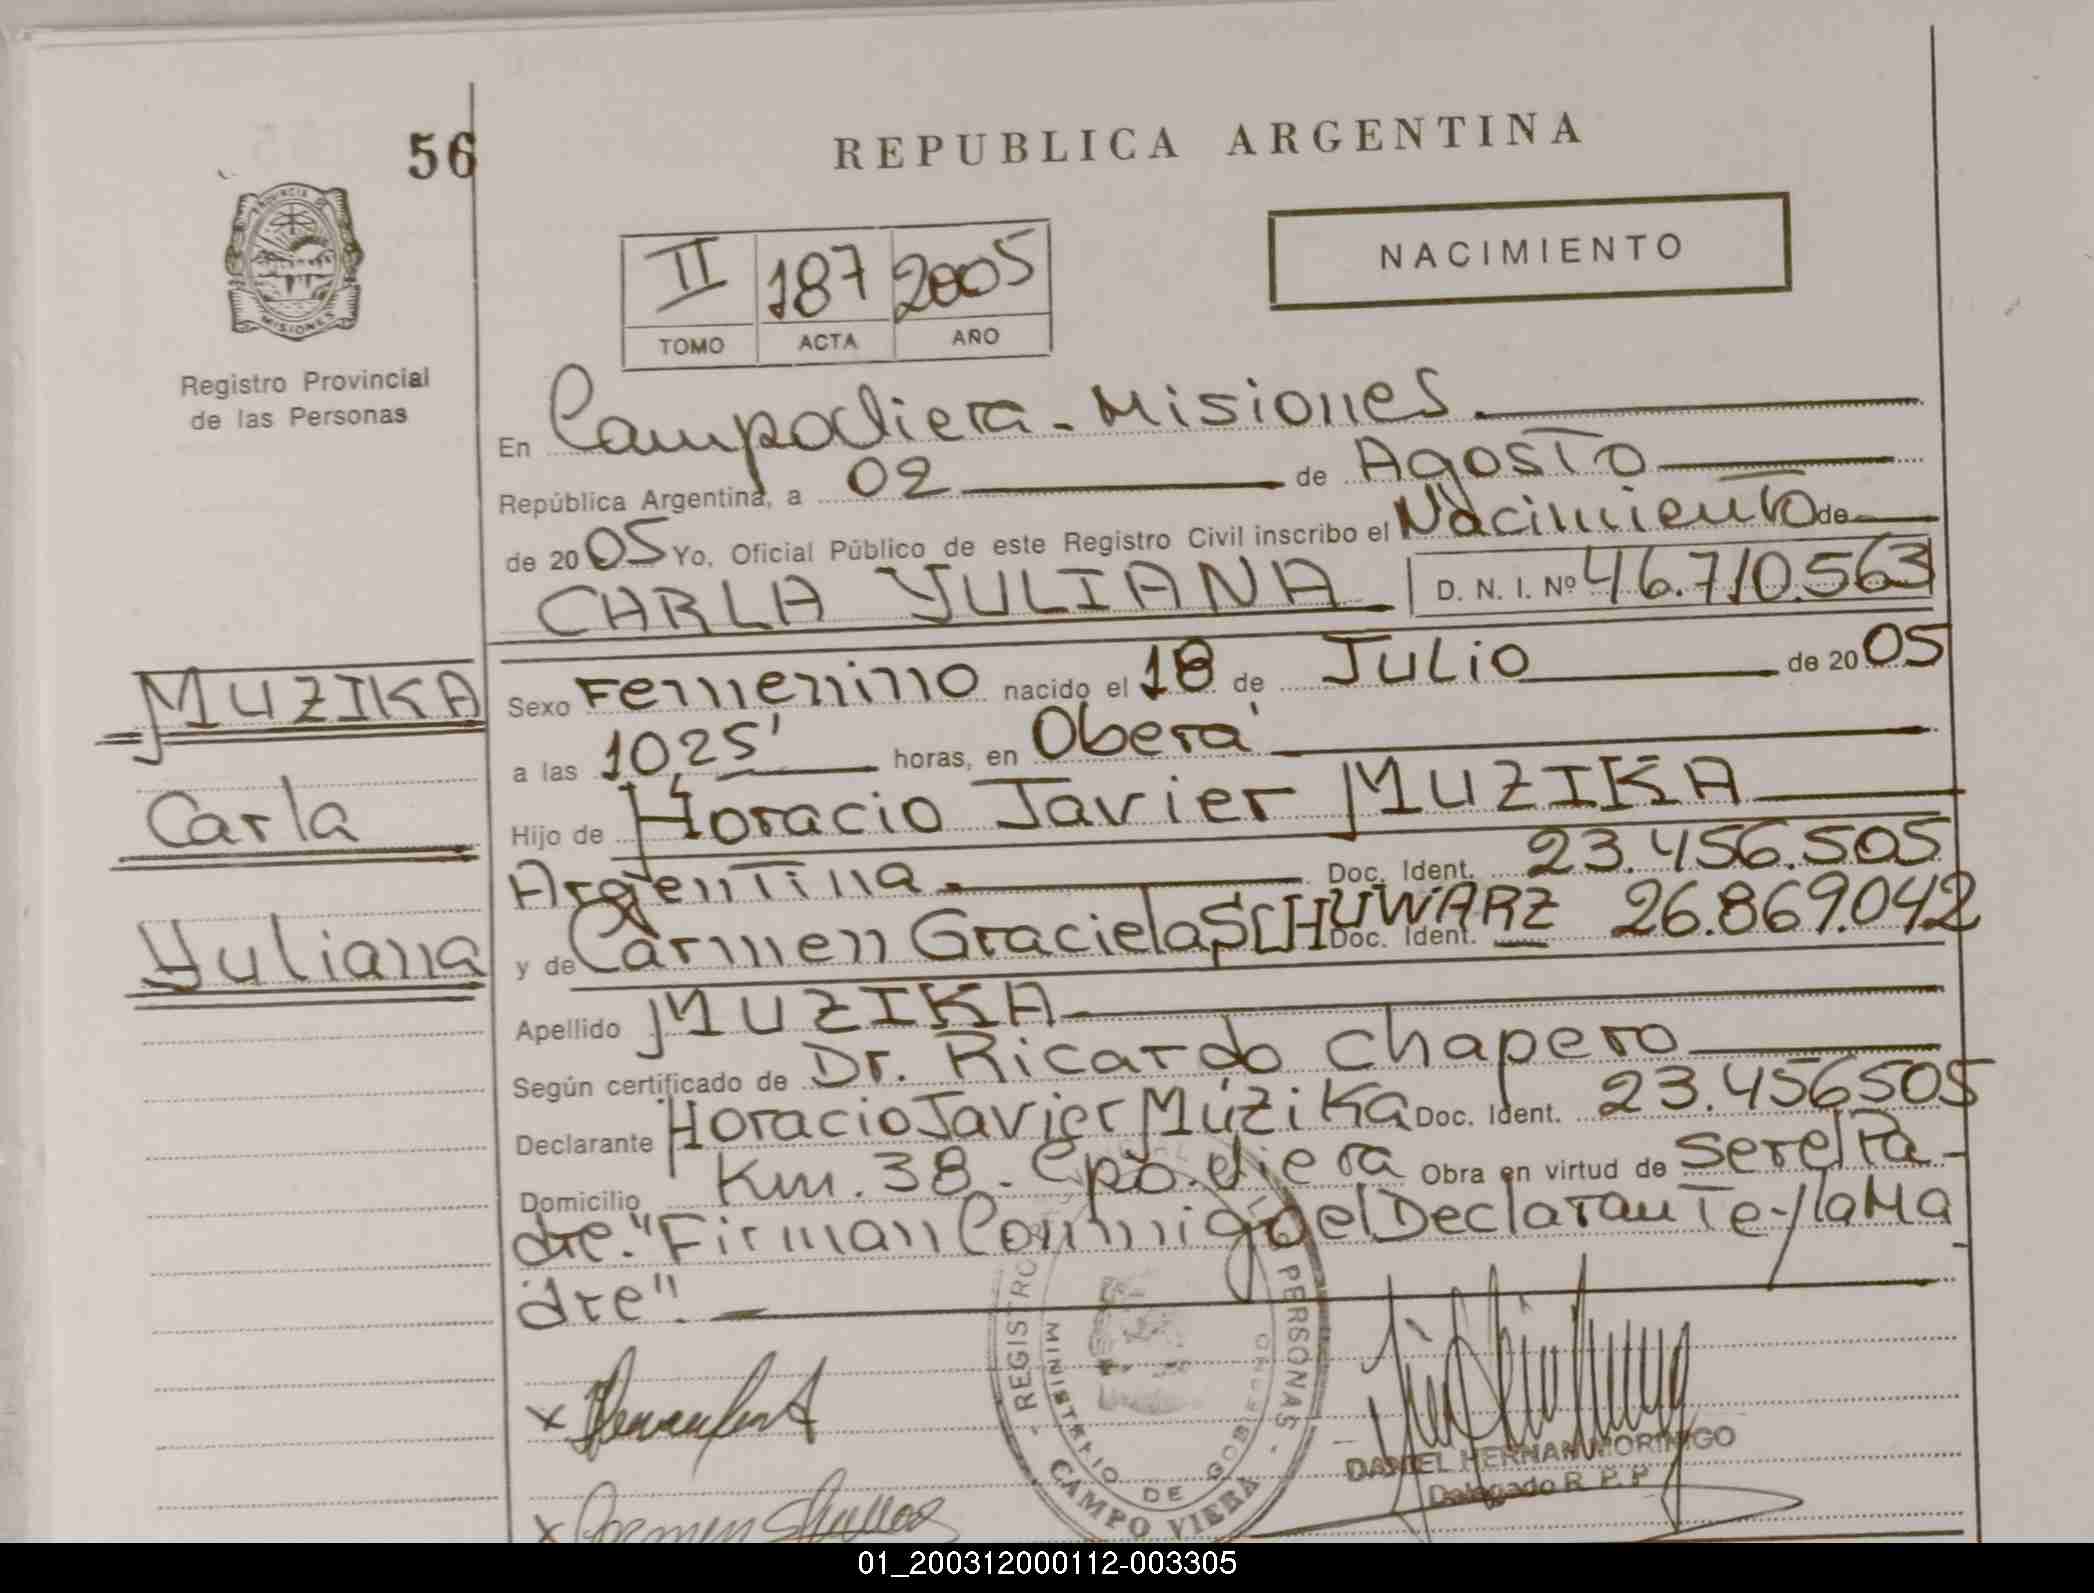 56
REPUBLICA ARGENTINA
PROVINCIA DE
MISIONES
Registro Provincial
de las Personas
NACIMIENTO
II 187 2005
TOMO ACTA AÑO
En Campo Viera - Misiones.
República Argentina, a 02 de Agosto
de 2005 Yo, Oficial Público de este Registro Civil inscribo el Nacimiento de
CARLA YULIANA D. N. I. Nº 46.710.563
MUZIKA
Carla
Yuliana
Sexo Femenino nacido el 18 de Julio de 2005
a las 10,25' horas, en Oberá
Hijo de Horacio Javier MUZIKA
Argentina. Doc. Ident. 23.456.505
y de Carmen Graciela SCHUWARZ Doc. Ident. 26.869.042
Apellido MUZIKA
Según certificado de Dr. Ricardo Chapero
Declarante Horacio Javier Múzika Doc. Ident. 23.456505
Domicilio Km. 38. Cpo. Viera Obra en virtud de ser el Pa-
dre. "Firman Conmigo el Declarante y la Ma
dre".
REGISTRO PERSONAS
MINISTERIO DE GOBIERNO
- CAMPO VIERA -
DANIEL HERNAN MORINIGO
Delegado R. P. P
x
x Carmen
01_200312000112-003305